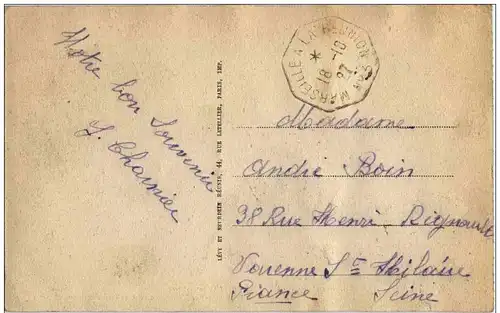 Notre bon Souvenir
J. Charrier
LÉVY ET NEURDEIN RÉUNIS, 44, RUE LETELLIER, PARIS, IMP.
MARSEILLE A LA REUNION
*
18 - 10
27
Madame
André Boin
38 Rue Henri - Rignault
Varenne St Hilaire
France Seine